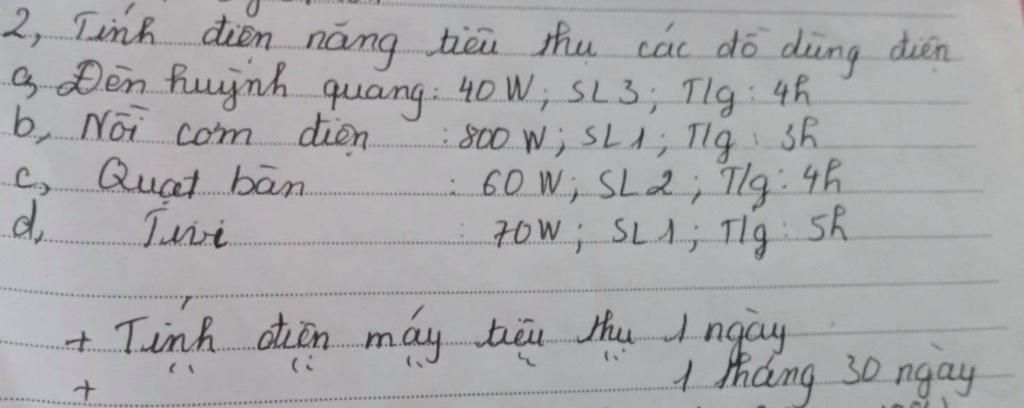 2, Tính điện năng tiêu thụ các đồ dùng điện
a, Đèn huỳnh quang: 40W; SL3; T/g: 4h
b, Nồi cơm điện : 800W; SL1; T/g: 3h
c, Quạt bàn : 60W; SL2; T/g: 4h
d, Tivi : 70W; SL1; T/g: 5h
+ Tính điện máy tiêu thụ 1 ngày
+ 1 tháng 30 ngày